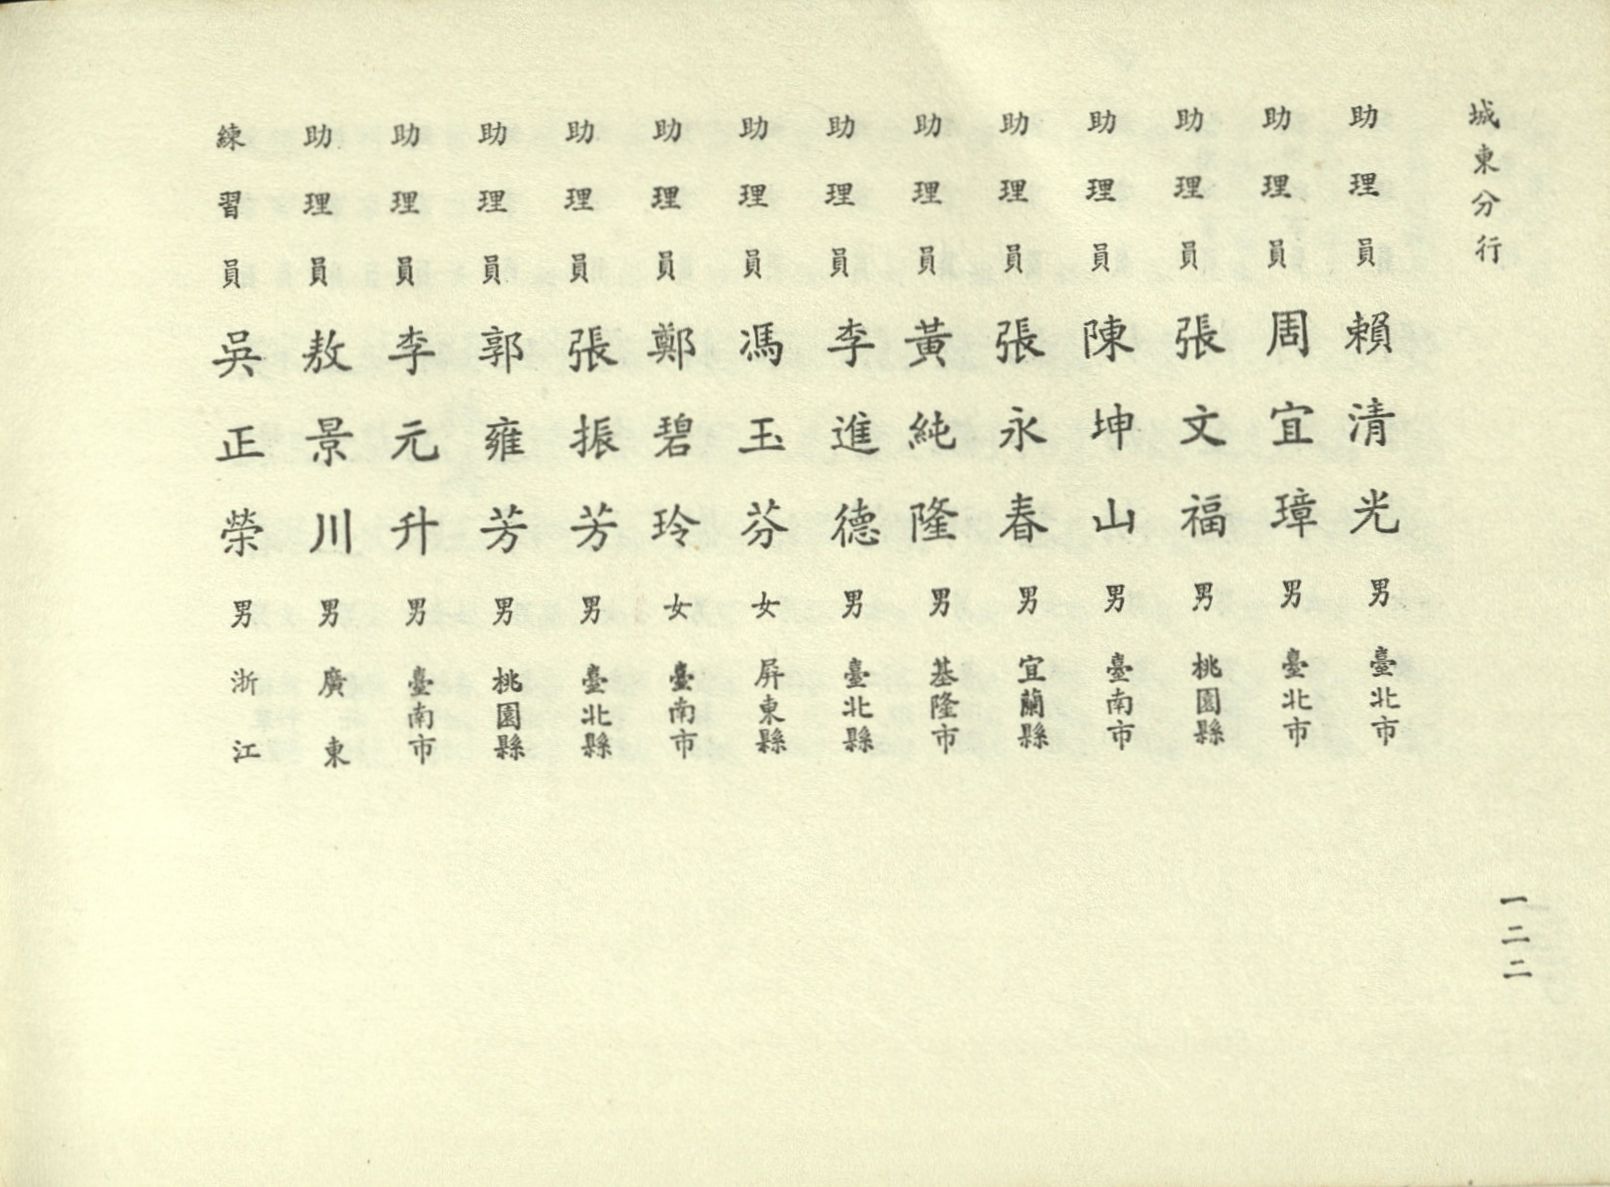 城東分行
助理員賴清光男臺北市
助理員周宜璋男臺北市
助理員張文福男桃園縣
助理員陳坤山男臺南市
助理員張永春男宜蘭縣
助理員黃純隆男基隆市
助理員李進德男臺北縣
助理員馮玉芬女屏東縣
助理員鄭碧玲女臺南市
助理員張振芳男臺北縣
助理員郭雍芳男桃園縣
助理員李元升男臺南市
助理員敖景川男廣東
練習員吳正榮男浙江
一二二